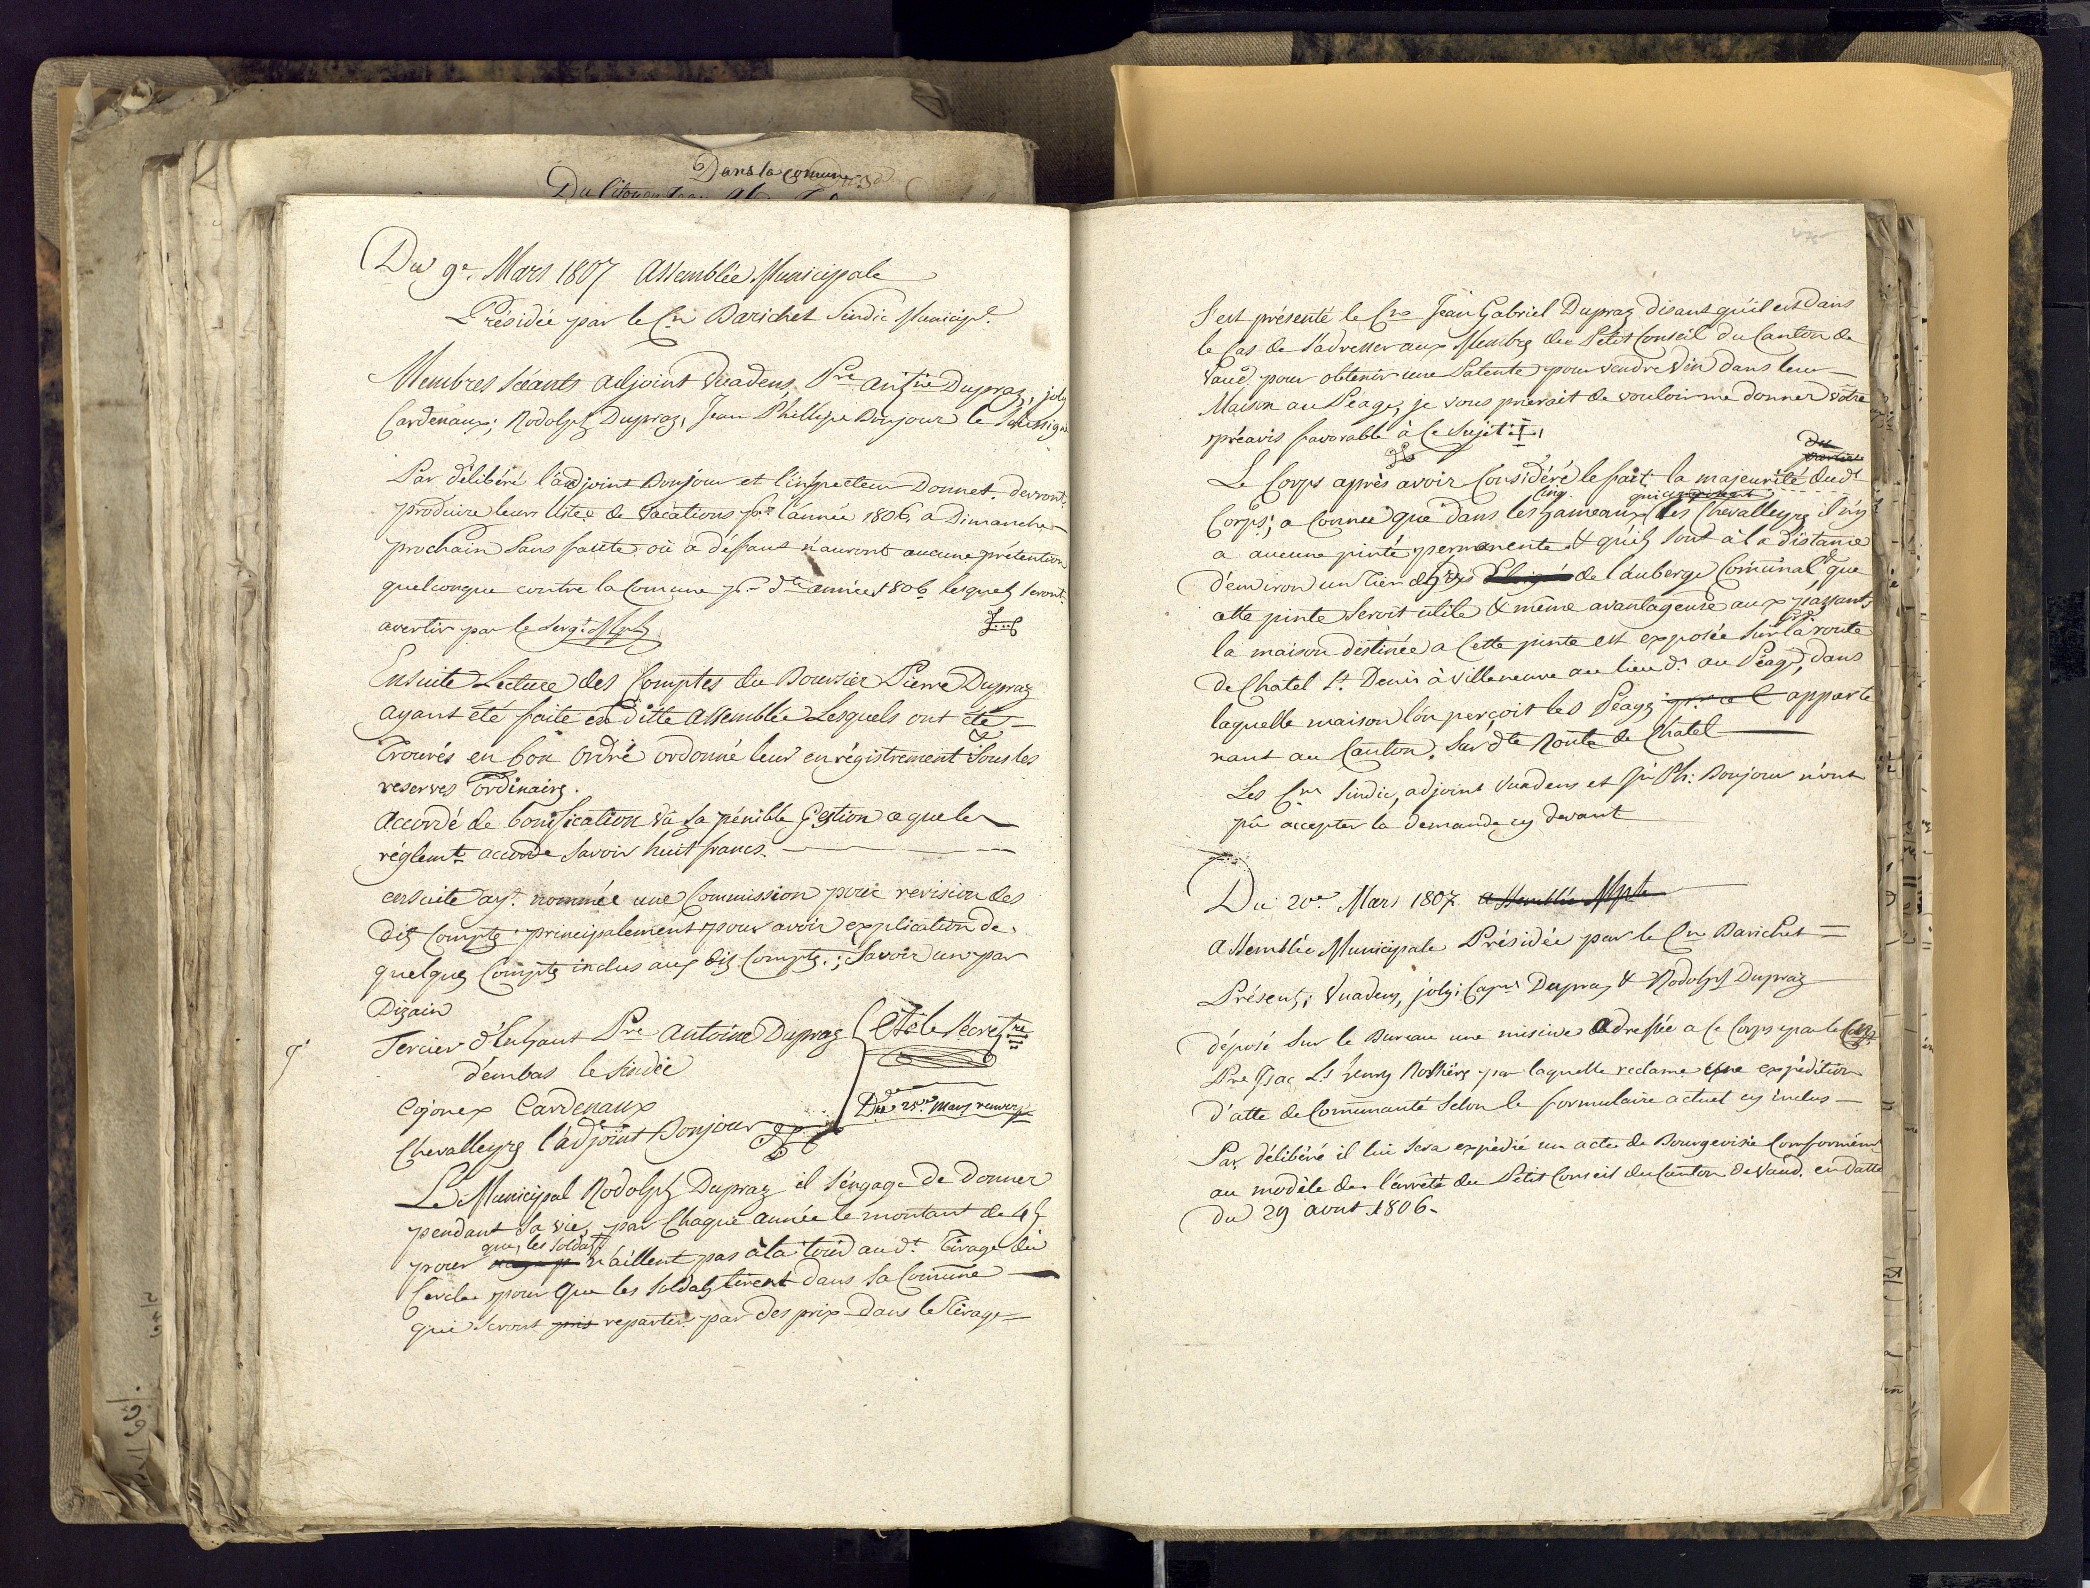 Dans la comune
Du 9e. Mars 1807 assemblée Municipale
Présidée par le Cn Barichet Sindic Municipl.
Membres séants adjoint Vuadens, Pre antne Dupraz, joly
Cardenaux; Rodolph Dupraz, Jean Phillipe Bonjour le
Par délibéré l'adjoint Bonjour et l'inspecteur Donnet. devront
produire leurs liste de vacations pr l'année 1806 a Dimanche
prochain sans faute où à déffaut n'auront aucune prétention
quelconque contre la Comune pr dte année 1806 lesquels seront
avertir par le sergt Mpl
Ensuite Lecture des Comptes du Boursier Pierre Dupraz
ayant été faite en ditte assemblée Lesquels ont été
Trouvés en bon ordre ordonné leur enrégistrement sous les
reserves ordinaires.
accordé de bonification vû sa pénible Gestion ce que le
réglemt accorde savoir huit francs.
ensuite ayt. nommée une Commission pour revision des
dits Compts principalement pour avoir explication de
quelques Compts inclus aux dits Compts.; savoir un par
Dizain
Tercier d'Enhaut Pre Antoine Dupraz
d'embas le Sindic
Cojonex Cardenaux
Chevalleyres l'adjoint Bonjour
Et le secretre
Du 25e Mars
Le Municipal Rodolph Dupraz il s'engage de donner
pendant sa vie, par Chaque année le montant de 4
que les soldats
pour n'aillent pas à la au dt Tirage du
Cercle pour que les soldats tirent dans sa Comune
qui seront pris repartir par des prix dans le Tirage
S'est présenté le Cn Jean Gabriel Dupraz disant qu'il est dans
le Cas de s'adresser aux Membres du Petit Conseil du Canton de
Vaud pour obtenir une Patente pour vendre vin dans leur
Maison au Péage, je vous prierait de vouloir me donner vôtre
préavis favorable à Ce sujet
Le Corps après avoir Considéré le fait, la majeurité dudt
cinq
Corps; a connu que dans les hameaux des Chevalleyres il n'y
a aucune pinte permanente & qu'ils sont à la distance
d'environ un tier de l'auberge Comunal que
cette pinte seroit utile & même avantageuse aux passants
la maison destinée a Cette pinte est exposée sur la grde route
de Chatel St. Denis à Villeneuve au lieu dt au Péage, dans
laquelle maison l'on perçoit les Péages apparte
nant au Canton, sur dte Route de Chatel
Les Cns Sindic, adjoint Vuadens et Jn Ph: Bonjour n'ont
pû accepter la demande cy devant
Du 20e Mars 1807 assemblée Mple
assemblée Municipale Présidée par le Cn Barichet
Présents; Vuadens, joly; Dupraz & Rodolph Dupraz
déposé sur le Bureau une missive adressée a Ce Corps par le
Pre Isac Ls henry par laquelle reclame une expédition
d'atte de Communauté selon le formulaire actuel cy inclus
Par délibéré il lui sera expédié un acte de Bourgeoisie Comformémt
au modèle de l'arrêté du Petit Conseil du Canton de Vaud. en datte
du 29 avout 1806.